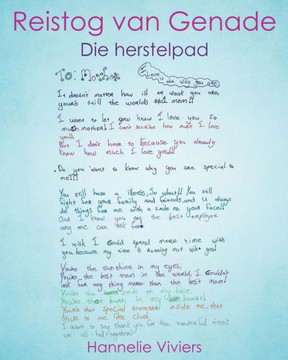 Reistog van Genade
Die herstelpad
To: Mother
I love u the way you are
It doesn't matter how ill or what you are
youre still the worlds #1 mom!!
I want to let you know I love you so
much mother! I can't describe how much I love
you!!
But I don't have to because you already
know how much I love you!!
Do you want to know why you are special to
me??!
You still have a illness, So what!! You still
fight for your family and friends, and u always
do things for me with a smile on your face
And I know you are the best employee
any one can ask for
I wish I could spend more time with
you because my time is running out with you!
Youre the sunshine in my eyes,
Youre the best mom in the world, I couldn't
ask for any thing more than the best mom!
Youre the smile on my face.
Youre that in my heart!
Youre that special someone inside me, that
sticks to me like glue!
I want to say thank you for the
we all had together!
Hannelie Viviers